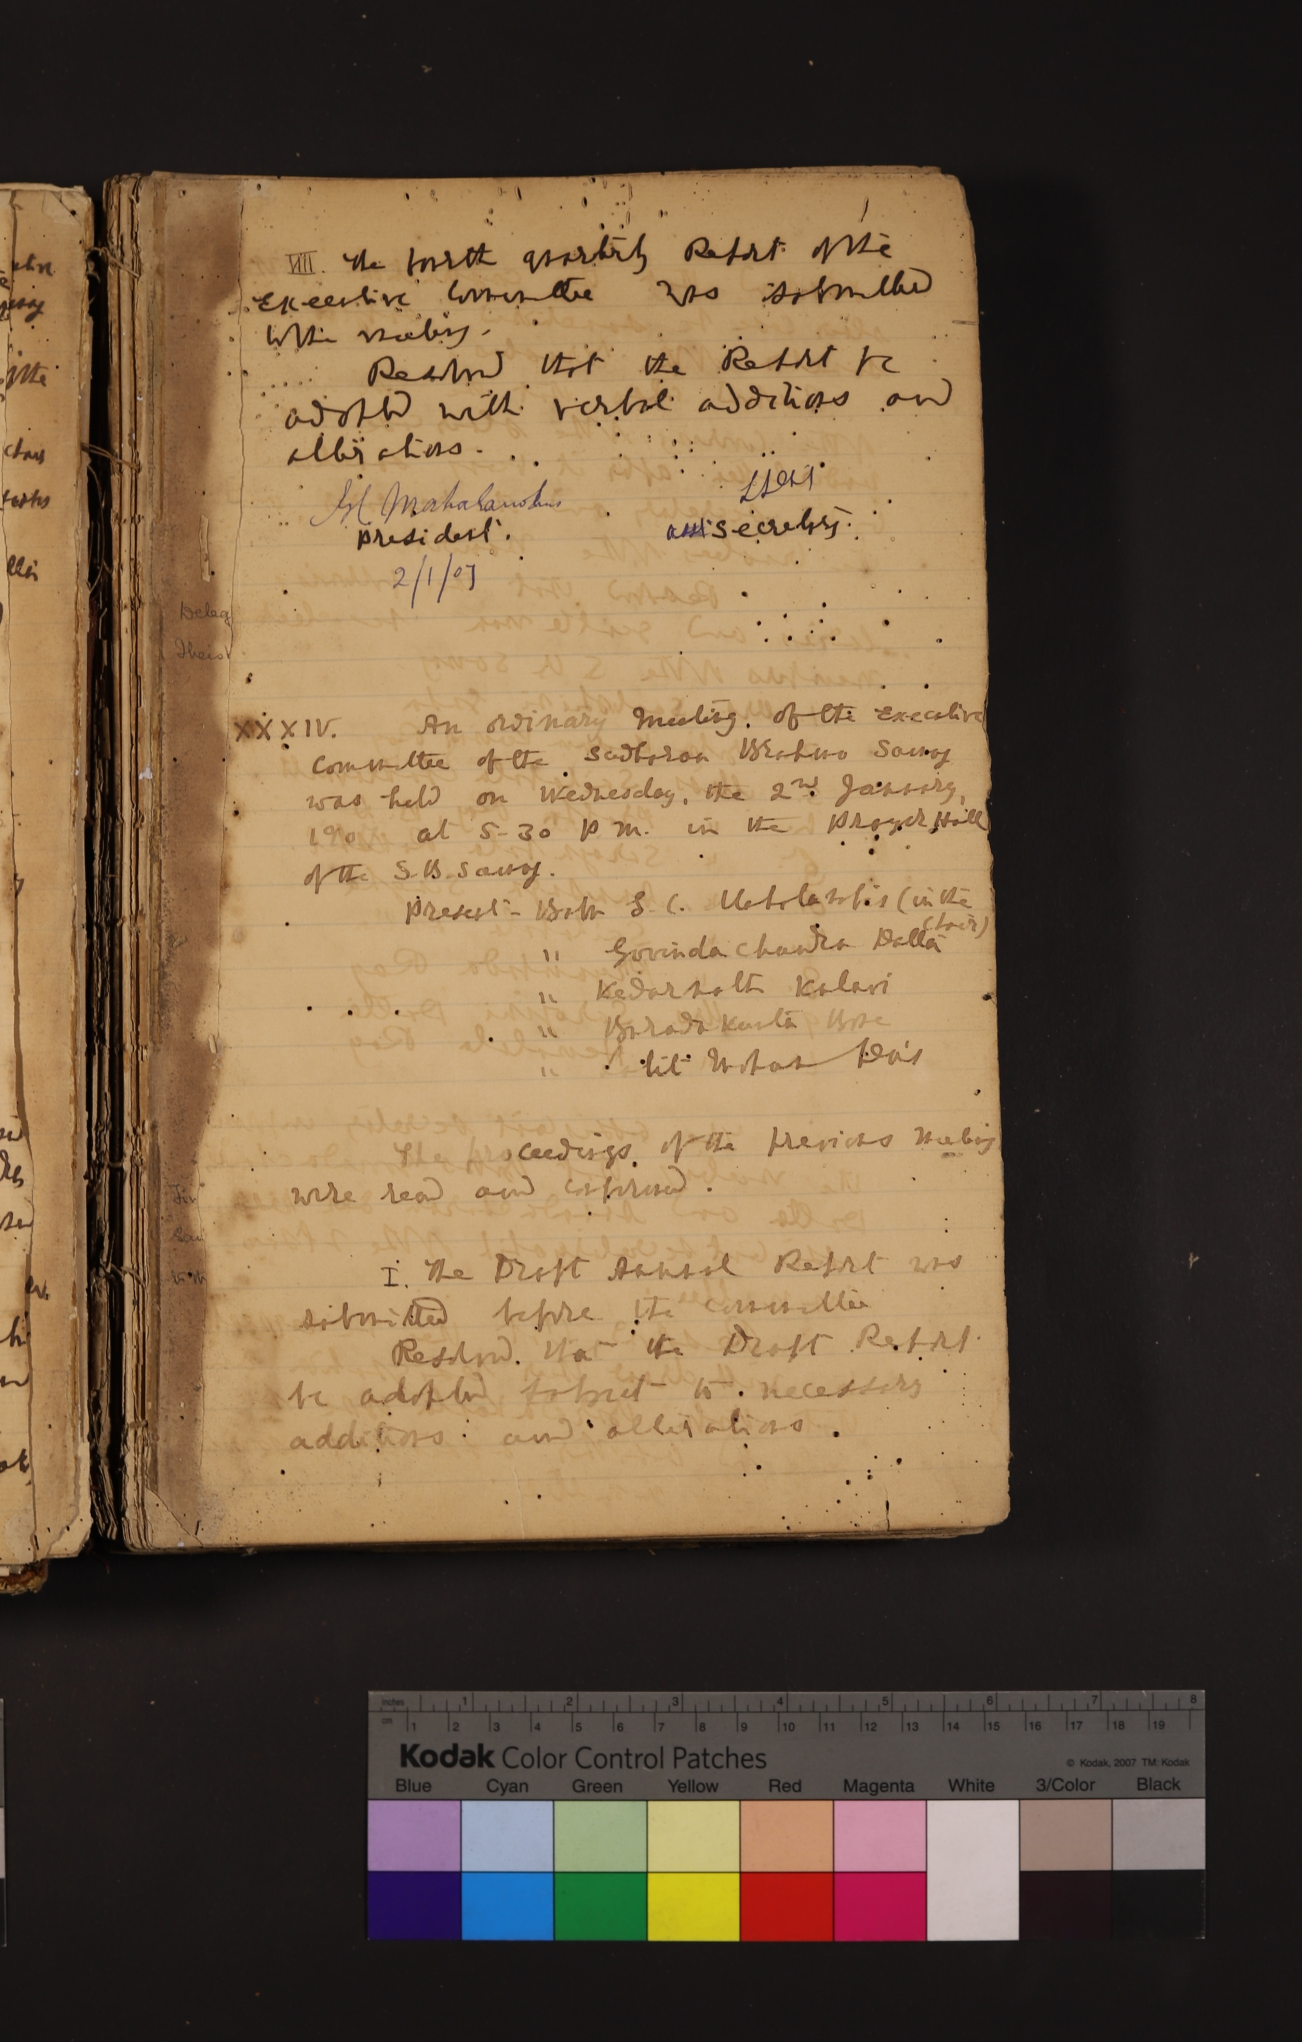 VIII. The fourth quarterly Report of the
Executive Committee was submitted
to the meeting.
Resolved that the Report be
adopted with verbal additions and
alterations.
Mahalanobis
President.
asst secretary.
2/1/07
Deleg
Theis
XXXIV. An ordinary Meeting of the Executive
Committee of the Sadharan Brahmo Samaj
was held on Wednesday, the 2nd January,
190 at 5-30 P.M. in the Prayer Hall
of the S.B. Samaj.
Present - Babu S.C. Mahalanobis (in the
chair)
" Govinda Chandra Datta
" Kedarnath Kulavi
" Barada Kanta Bose
" Lalit Mohan Das
The proceedings of the previous meeting
were read and confirmed.
I. The Draft Annual Report was
submitted before the committee
Resolved that the Draft Report
be adopted subject to necessary
additions and alterations.
inches 1 2 3 4 5 6 7 8
cm 1 2 3 4 5 6 7 8 9 10 11 12 13 14 15 16 17 18 19
Kodak Color Control Patches © Kodak, 2007 TM: Kodak
Blue Cyan Green Yellow Red Magenta White 3/Color Black